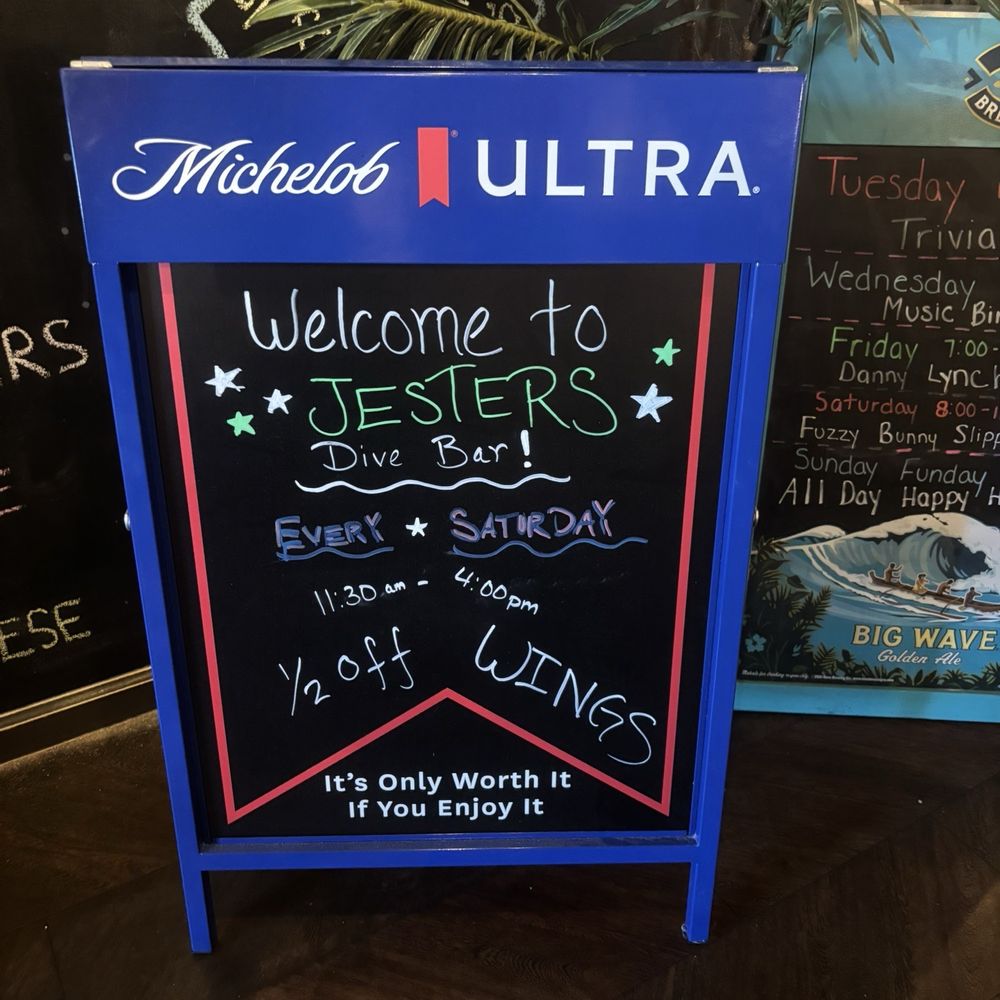 Michelob ULTRA
Welcome to
JESTERS
Dive Bar!
EVERY SATURDAY
11:30 am - 4:00pm
1/2 off WINGS
It's Only Worth It
If You Enjoy It
Tuesday
Trivia
Wednesday
Music
Friday 7:00-
Danny
Saturday 8:00-
Fuzzy Bunny
Sunday Funday
All Day Happy
BIG WAVE
Golden Ale